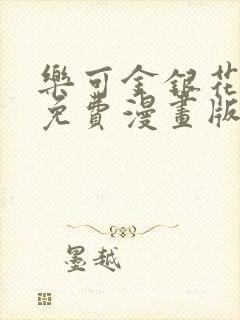 樂可金銀花
免費漫畫版
墨越